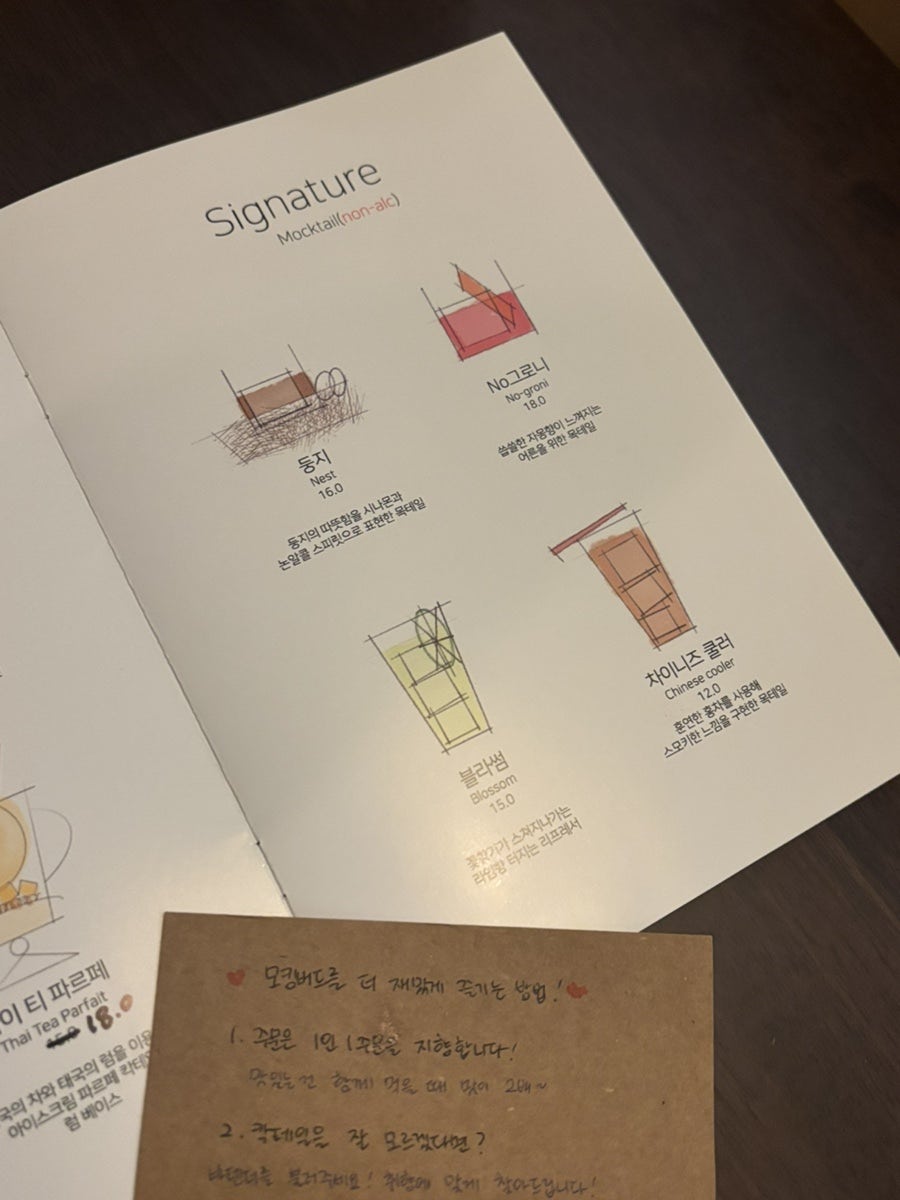 Signature
Mocktail(non-alc)
No그로니
No-groni
18.0
씁쓸한 자몽향이 느껴지는
어른을 위한 목테일
둥지
Nest
16.0
둥지의 따뜻함을 시나몬과
논알콜 스피릿으로 표현한 목테일
차이니즈 쿨러
Chinese cooler
12.0
훈연한 홍차를 사용해
스모키한 느낌을 구현한 목테일
블라썸
Blossom
15.0
꽃향기가 스쳐지나가는
라임향 터지는 리프레셔
이 티 파르페
Thai Tea Parfait
15.0 18.0
국의 차와 태국의 럼을 이용
아이스크림 파르페 칵테
럼 베이스
모킹버드를 더 재밌게 즐기는 방법!
1. 주문은 1인 1주문을 지향합니다!
맛있는건 함께 먹을 때 맛이 2배~
2. 칵테일을 잘 모르겠다면?
바텐더를 불러주세요! 취향에 맞게 찾아드립니다!